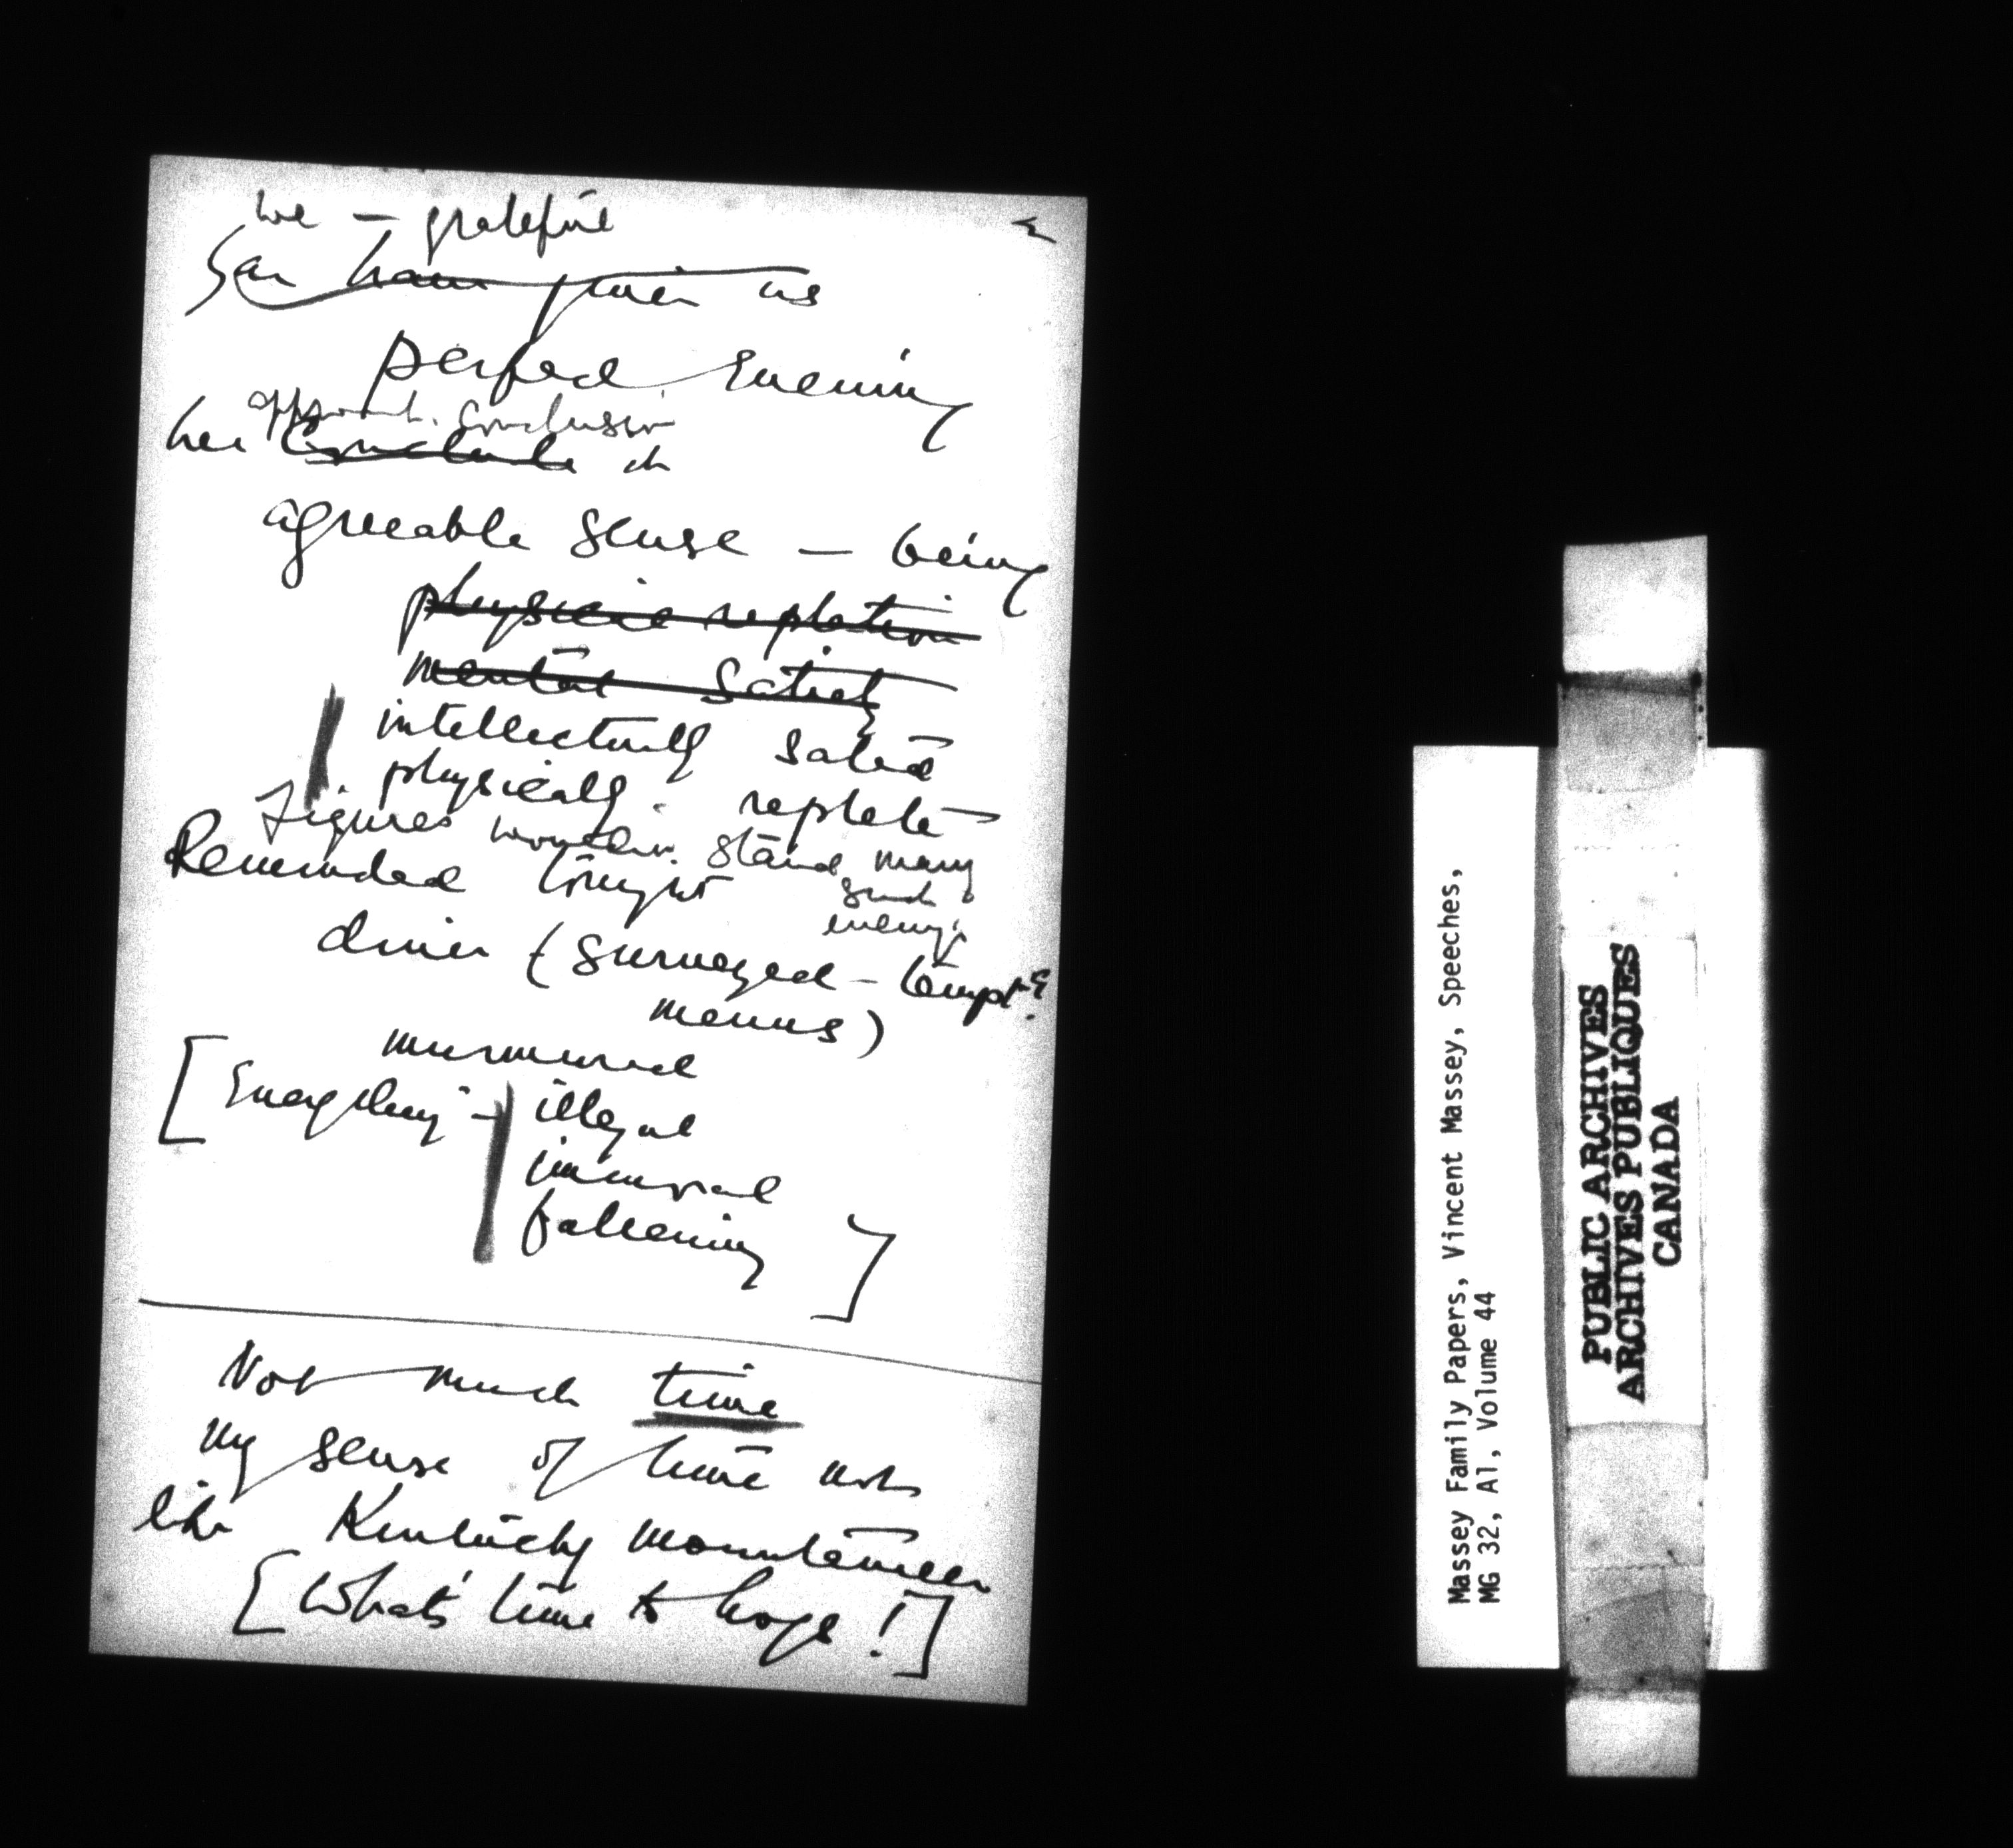 we — grateful
have given us
perfect evening
approach. conclusion
her conclude in
agreeable sense — being
physical repletion
mental satiety
intellectually sated
physically replete
Figures wouldn. stand many
such
evenings
Reminded tonight
dinner (surveyed - tempt'g
menus)
murmured
[Everything - illegal
immoral
fattening]
Not much time
my sense of time not
like Kentucky mountaineer
[What's time to hogs!]
Massey Family Papers, Vincent Massey, Speeches,
MG 32, A1, Volume 44
PUBLIC ARCHIVES
ARCHIVES PUBLIQUES
CANADA